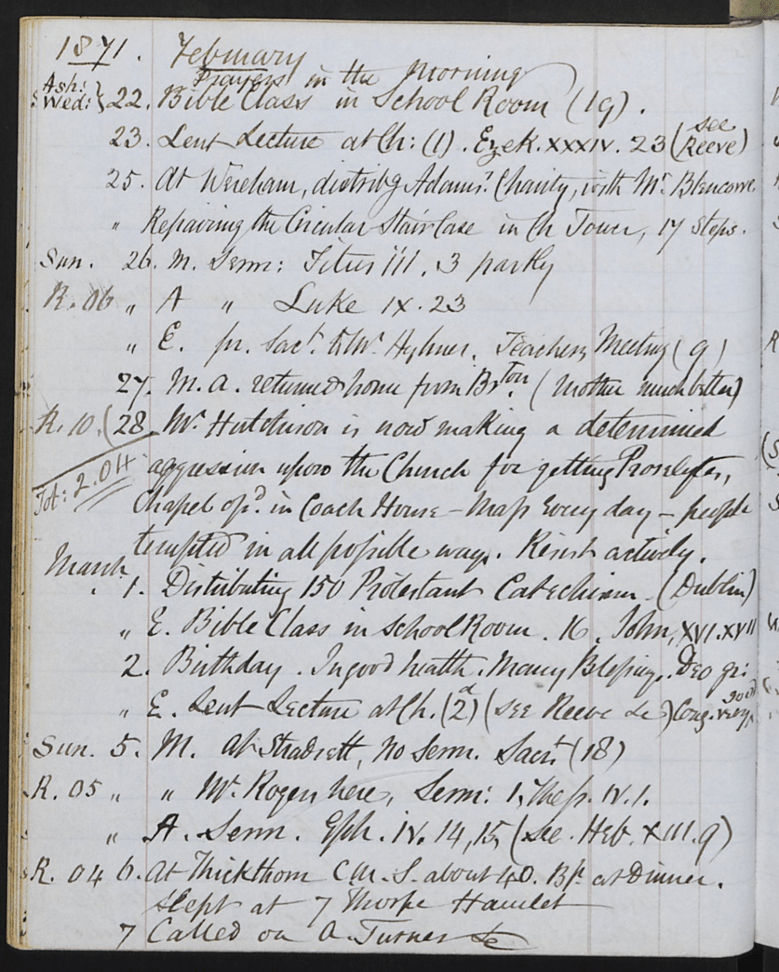 1871. February
Prayers in the Morning
Ash: Wed: } 22. Bible Class in School Room (19).
23. Lent Lecture at Ch: (1). Ezek. XXXIV. 23 (see Reeve)
25. At Wereham, distribg Adams' Charity, with Mr. Blencowe
" Repairing the Circular Stair Case in Ch Tower, 17 Steps.
Sun. 26. M. Serm: Titus III. 3 partly
R. 06 " A " Luke IX. 23
" E. pr. Sact. to Mr. Teachers Meeting (9)
27. M. A. returned home from Brton. (Mother much better)
R. 10. (28. Mr. Hutchison is now making a determined
aggression upon the Church for getting Proselytes,
Tot: 2.04
Chapel opd. in Coach House – Mass every day – people
tempted in all possible ways. Resist actively.
March 1. Distributing 150 Protestant Catechism. (Dublin)
" E. Bible Class in School Room. 16. John, XVI. XVII
2. Birthday. In good health. Many Blessings. Deo gr:
" E. Lent Lecture at Ch. (2d) (see Reeve &c) Cong. very good
Sun. 5. M. At Stradsett, no Serm. Sact. (18)
R. 05 " " Mr. Rogers here, Serm: 1, Thess. IV. 1.
" A. Serm. Eph. IV. 14, 15, (see Heb. XIII. 9)
R. 04 6. At Thickthorn C.M.S. about 40. Bp. at Dinner.
Slept at 7 Thorpe Hamlet
7 Called on A. Turner &c